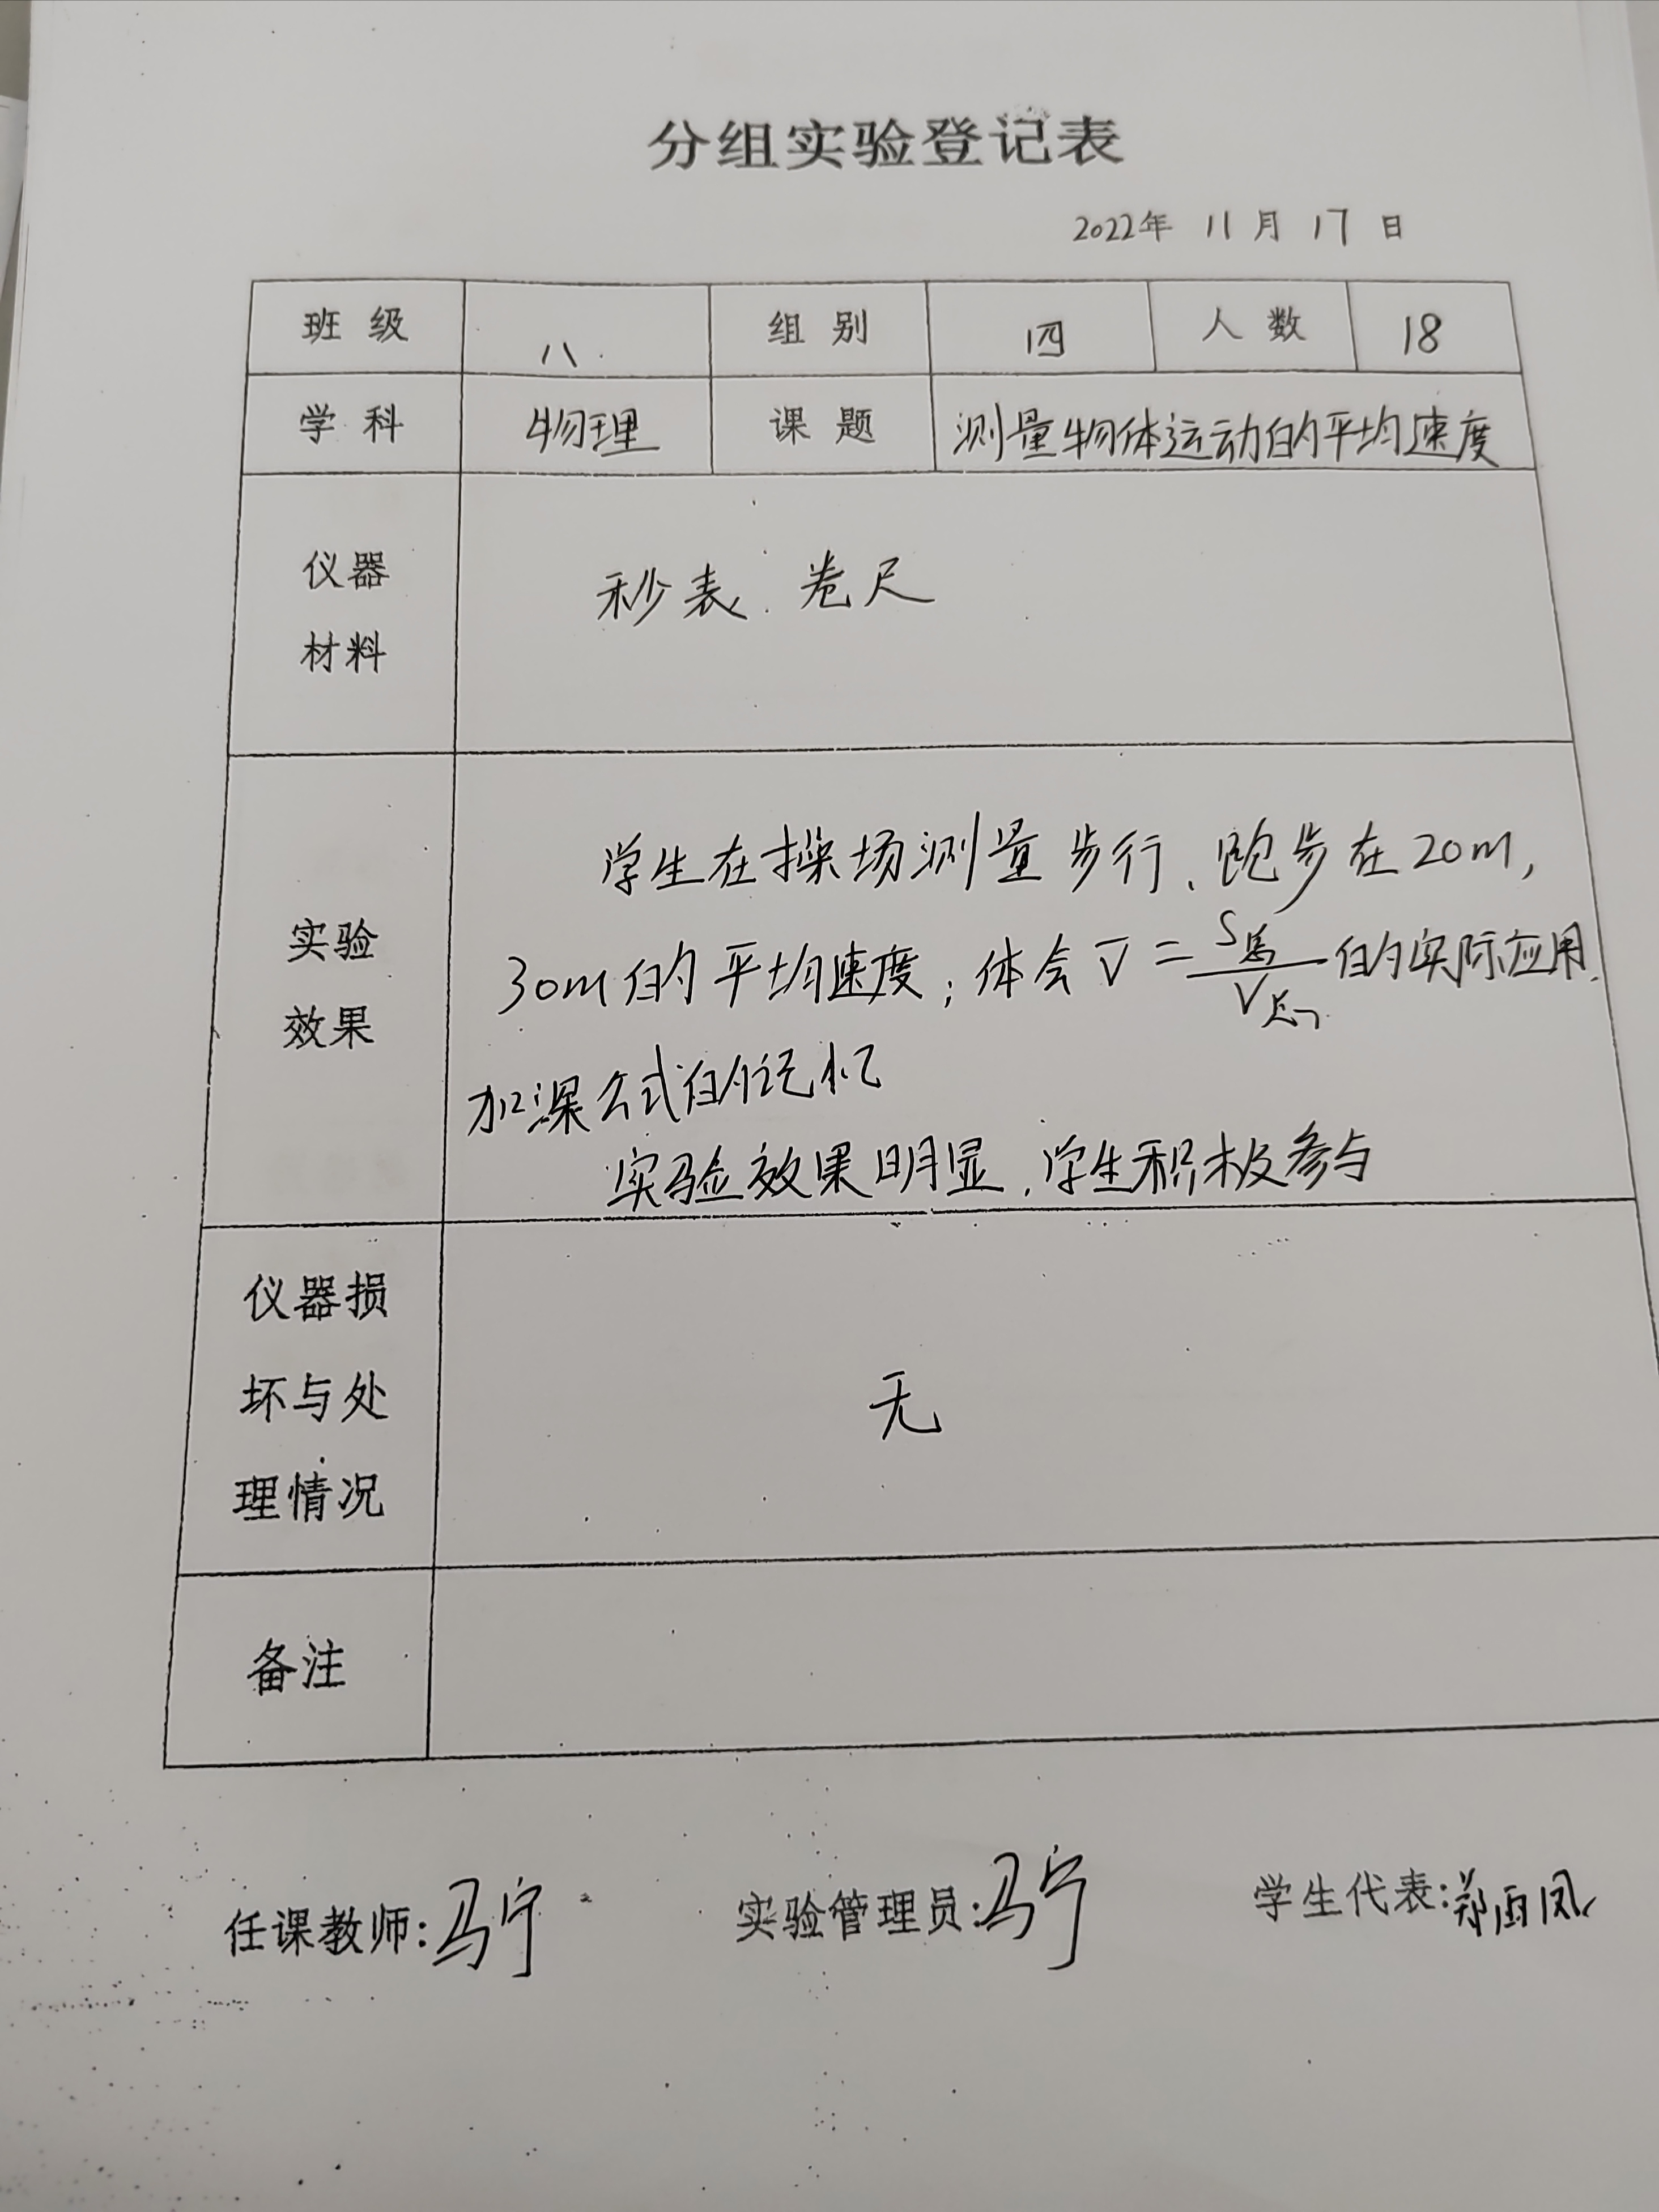 分组实验登记表
2022年 11月 17日
班级 八 组别 四 人数 18
学科 物理 课题 测量物体运动的平均速度
仪器
材料
秒表、卷尺
实验
效果
学生在操场测量步行、跑步在20m,
30m的平均速度;体会 v̄ = S总/V总 的实际应用.
加深公式的记忆
实验效果明显,学生积极参与
仪器损
坏与处
理情况
无
备注
任课教师:马宁 实验管理员:马宁 学生代表:郑雨凤